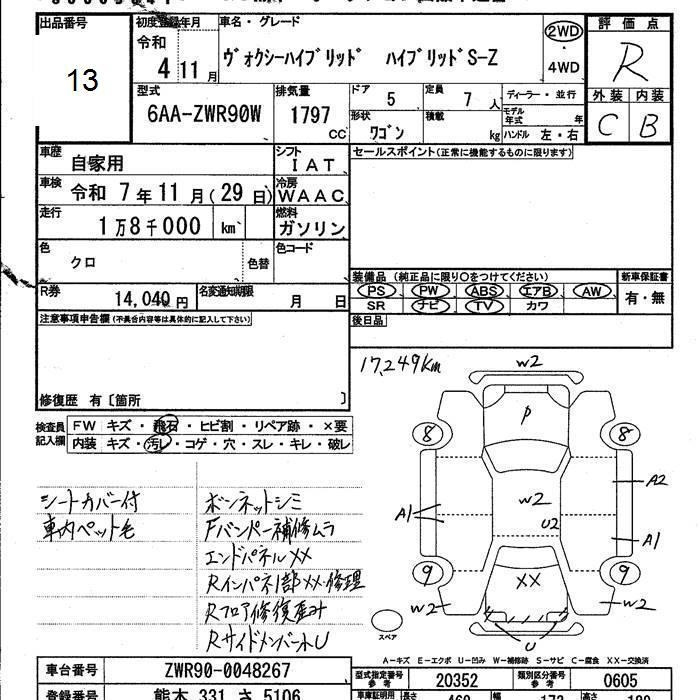 出品番号
13
初度登録年月
令和
4 11 月
車名・グレード
ヴォクシーハイブリッド ハイブリッドS-Z
2WD
・
4WD
評価点
R
外装 内装
C B
型式
6AA-ZWR90W
排気量
1797
CC
ドア 5
定員 7 人
ディーラー・並行
形状 ワゴン
積載 kg
モデル年式 年
ハンドル 左・右
車歴 自家用
シフト IAT
セールスポイント(正常に機能するものに限ります)
車検 令和 7 年 11 月(29 日)
冷房 WAAC
走行 1万8千000 km
燃料 ガソリン
色 クロ 色替
色コード
R券 14,040 円
名変通知期限 月 日
装備品 (純正品に限り○をつけてください)
新車保証書
PS PW ABS エアB AW
SR ナビ TV カワ
有・無
後日品
注意事項申告欄(不具合内容等は具体的に記入して下さい)
修復歴 有〔箇所 〕
検査員記入欄
FW キズ・飛石・ヒビ割・リペア跡・×要
内装 キズ・汚レ・コゲ・穴・スレ・キレ・破レ
17,249km
シートカバー付
車内ペット毛
ボンネットシミ
Fバンパー補修ムラ
エンドパネルXX
Rインパネ1部XX・修理
Rフロア修復歪み
RサイドメンバーホU
W2
P
8 8
A2
W2
A1
U2
A1
9 9
XX
W2 W2
U
スペア
A-キズ E-エクボ U-凹み W-補修跡 S-サビ C-腐食 XX-交換済
車台番号 ZWR90-0048267
型式指定番号 参考 20352
類別区分番号 参考 0605
登録番号 熊本 331 さ 5106